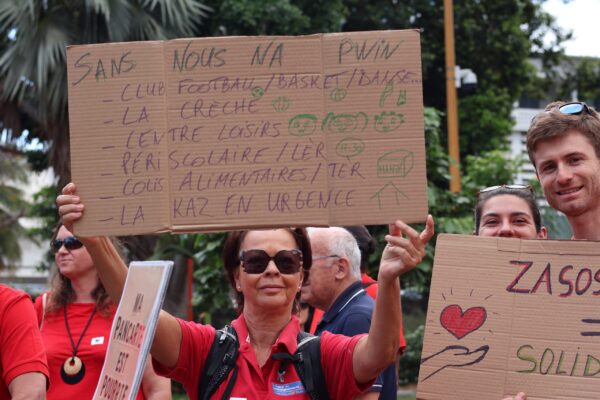 SANS NOUS NA PWIN
- CLUB FOOTBALL / BASKET / DANSE...
- LA CRÈCHE
- CENTRE LOISIRS
- PÉRISCOLAIRE / LER
- COLIS ALIMENTAIRES / TER
- LA KAZ EN URGENCE
MA
PANCARTE
EST
POURRIE
ZASOS
=
SOLID